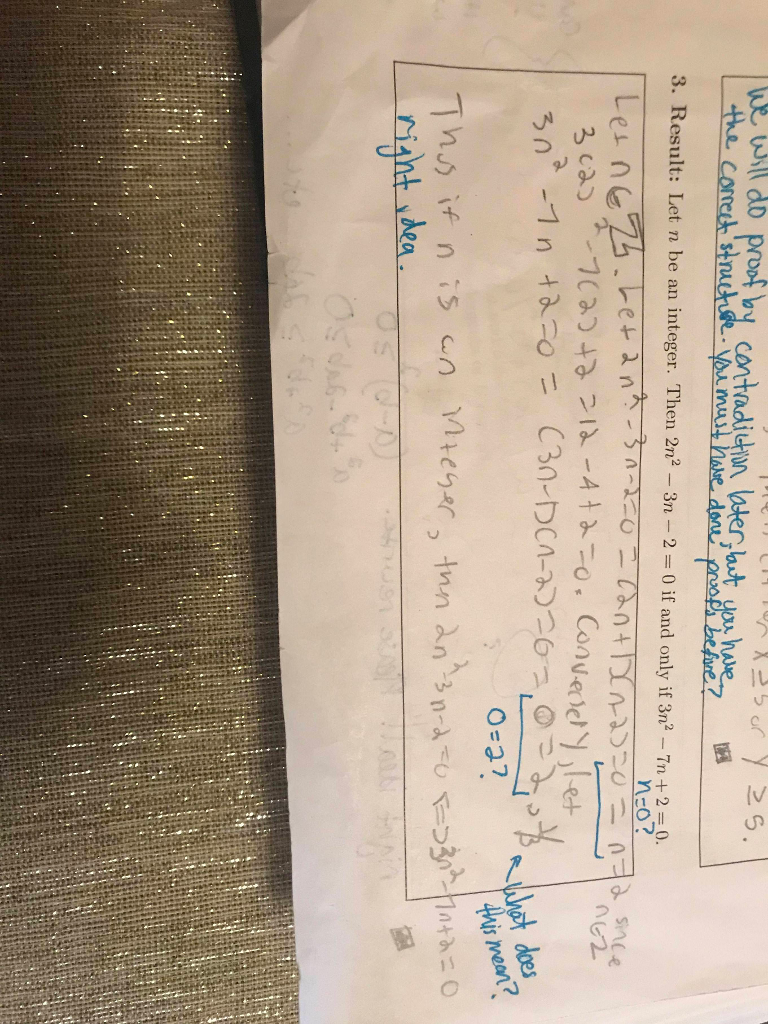 We will do proof by contradiction later, but you have
the correct structure. You must have done proofs before?
3. Result: Let n be an integer. Then 2n² − 3n − 2 = 0 if and only if 3n² − 7n + 2 = 0.
n=0?
Let n ∈ ℤ. Let 2n² - 3n - 2 = 0 = (2n+1)(n-2) = 0 = n = 2 since
n ∈ Z
3(2)² - 7(2) + 2 = 12 - 4 + 2 = 0. Conversely, let
3n² - 7n + 2 = 0 = (3n-1)(n-2) = 0 = 0 = 2, 1/3
0=2?
← What does
this mean?
Thus if n is an integer, then 2n² - 3n - 2 = 0 <=> 3n² - 7n + 2 = 0
right idea.